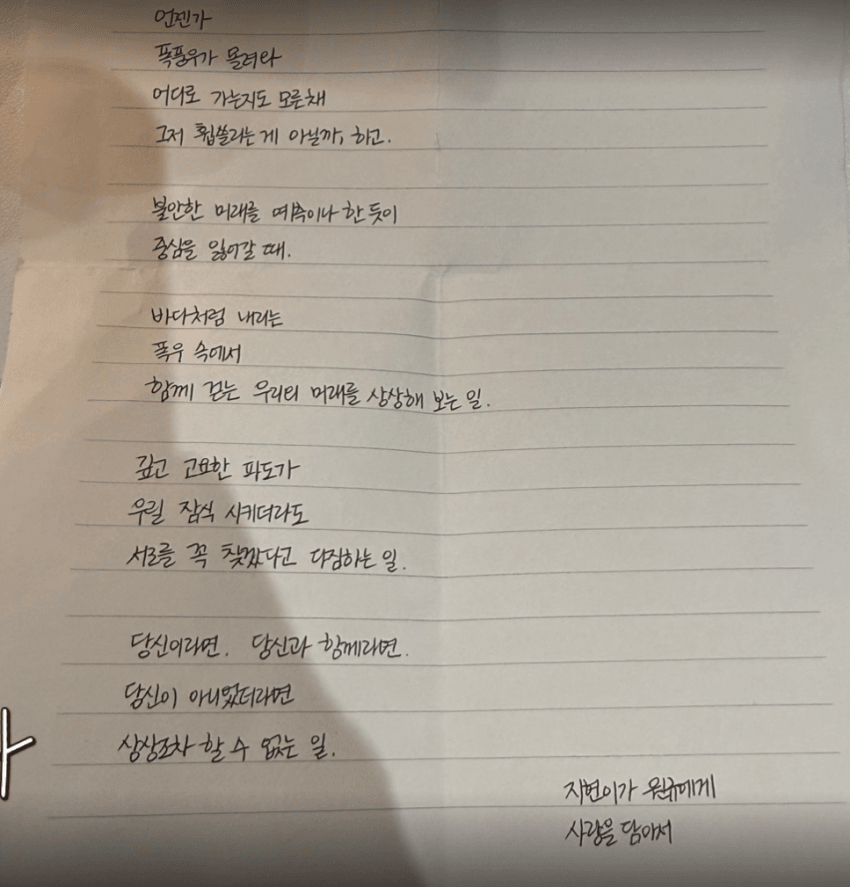 언젠가
폭풍우가 몰려와
어디로 가는지도 모른채
그저 휩쓸리는게 아닐까, 하고.
불안한 미래를 예측이나 한 듯이
중심을 잃어갈 때.
바다처럼 내리는
폭우 속에서
함께 걷는 우리의 미래를 상상해 보는 일.
깊고 고요한 파도가
우릴 잠식 시키더라도
서로를 꼭 찾겠다고 다짐하는 일.
당신이라면. 당신과 함께라면.
당신이 아니었더라면
상상조차 할 수 없는 일.
지현이가 원규에게
사랑을 담아서